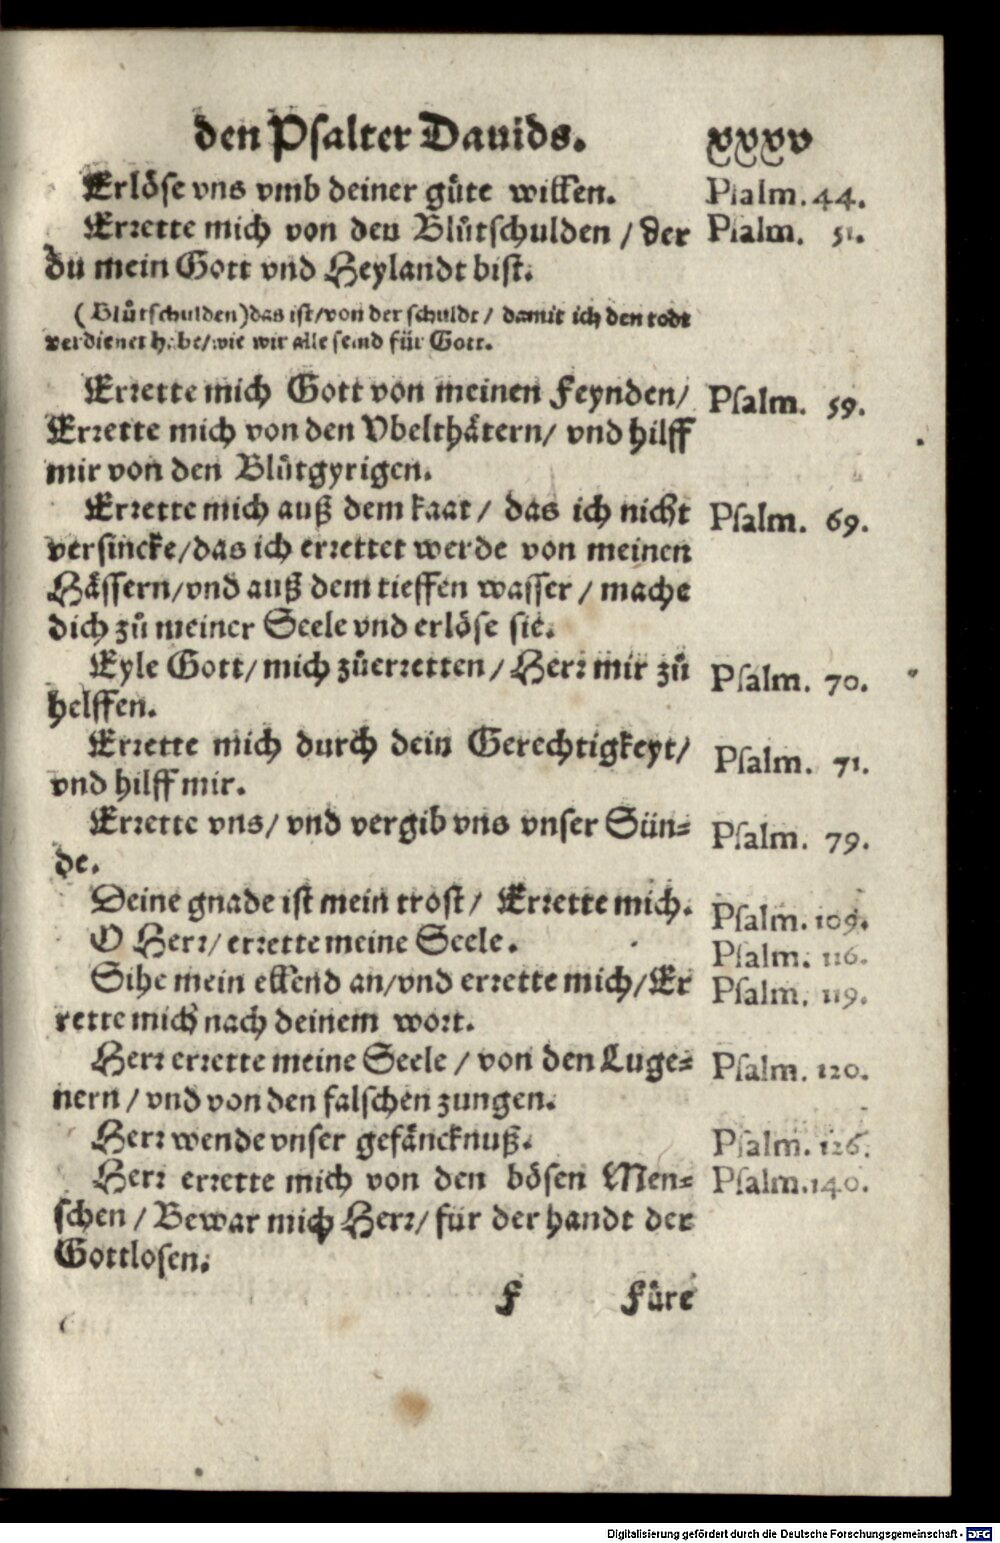 den Psalter Dauids. xxxv
Erlöse vns vmb deiner güte willen. Psalm. 44.
Errette mich von den Blůtschulden / der Psalm. 51.
du mein Gott vnd Heylandt bist.
(Blůtschulden) das ist / von der schuldt / damit ich den todt
verdienet habe / wie wir alle seind für Gott.
Errette mich Gott von meinen Feynden / Psalm. 59.
Errette mich von den Vbelthätern / vnd hilff
mir von den Blůtgyrigen.
Errette mich auß dem kaat / das ich nicht Psalm. 69.
versincke / das ich errettet werde von meinen
Hässern / vnd auß dem tieffen wasser / mache
dich zů meiner Seele vnd erlöse sie.
Eyle Gott / mich zůerretten / Herr mir zů Psalm. 70.
helffen.
Errette mich durch dein Gerechtigkeyt / Psalm. 71.
vnd hilff mir.
Errette vns / vnd vergib vns vnser Sün= Psalm. 79.
de.
Deine gnade ist mein trost / Errette mich. Psalm. 109.
O Herr / errette meine Seele. Psalm. 116.
Sihe mein ellend an / vnd errette mich / Er Psalm. 119.
rette mich nach deinem wort.
Herr errette meine Seele / von den Luge= Psalm. 120.
nern / vnd von den falschen zungen.
Herr wende vnser gefäncknuß. Psalm. 126.
Herr errette mich von den bösen Men= Psalm. 140.
schen / Bewar mich Herr / für der handt der
Gottlosen.
F Füre
Digitalisierung gefördert durch die Deutsche Forschungsgemeinschaft - DFG